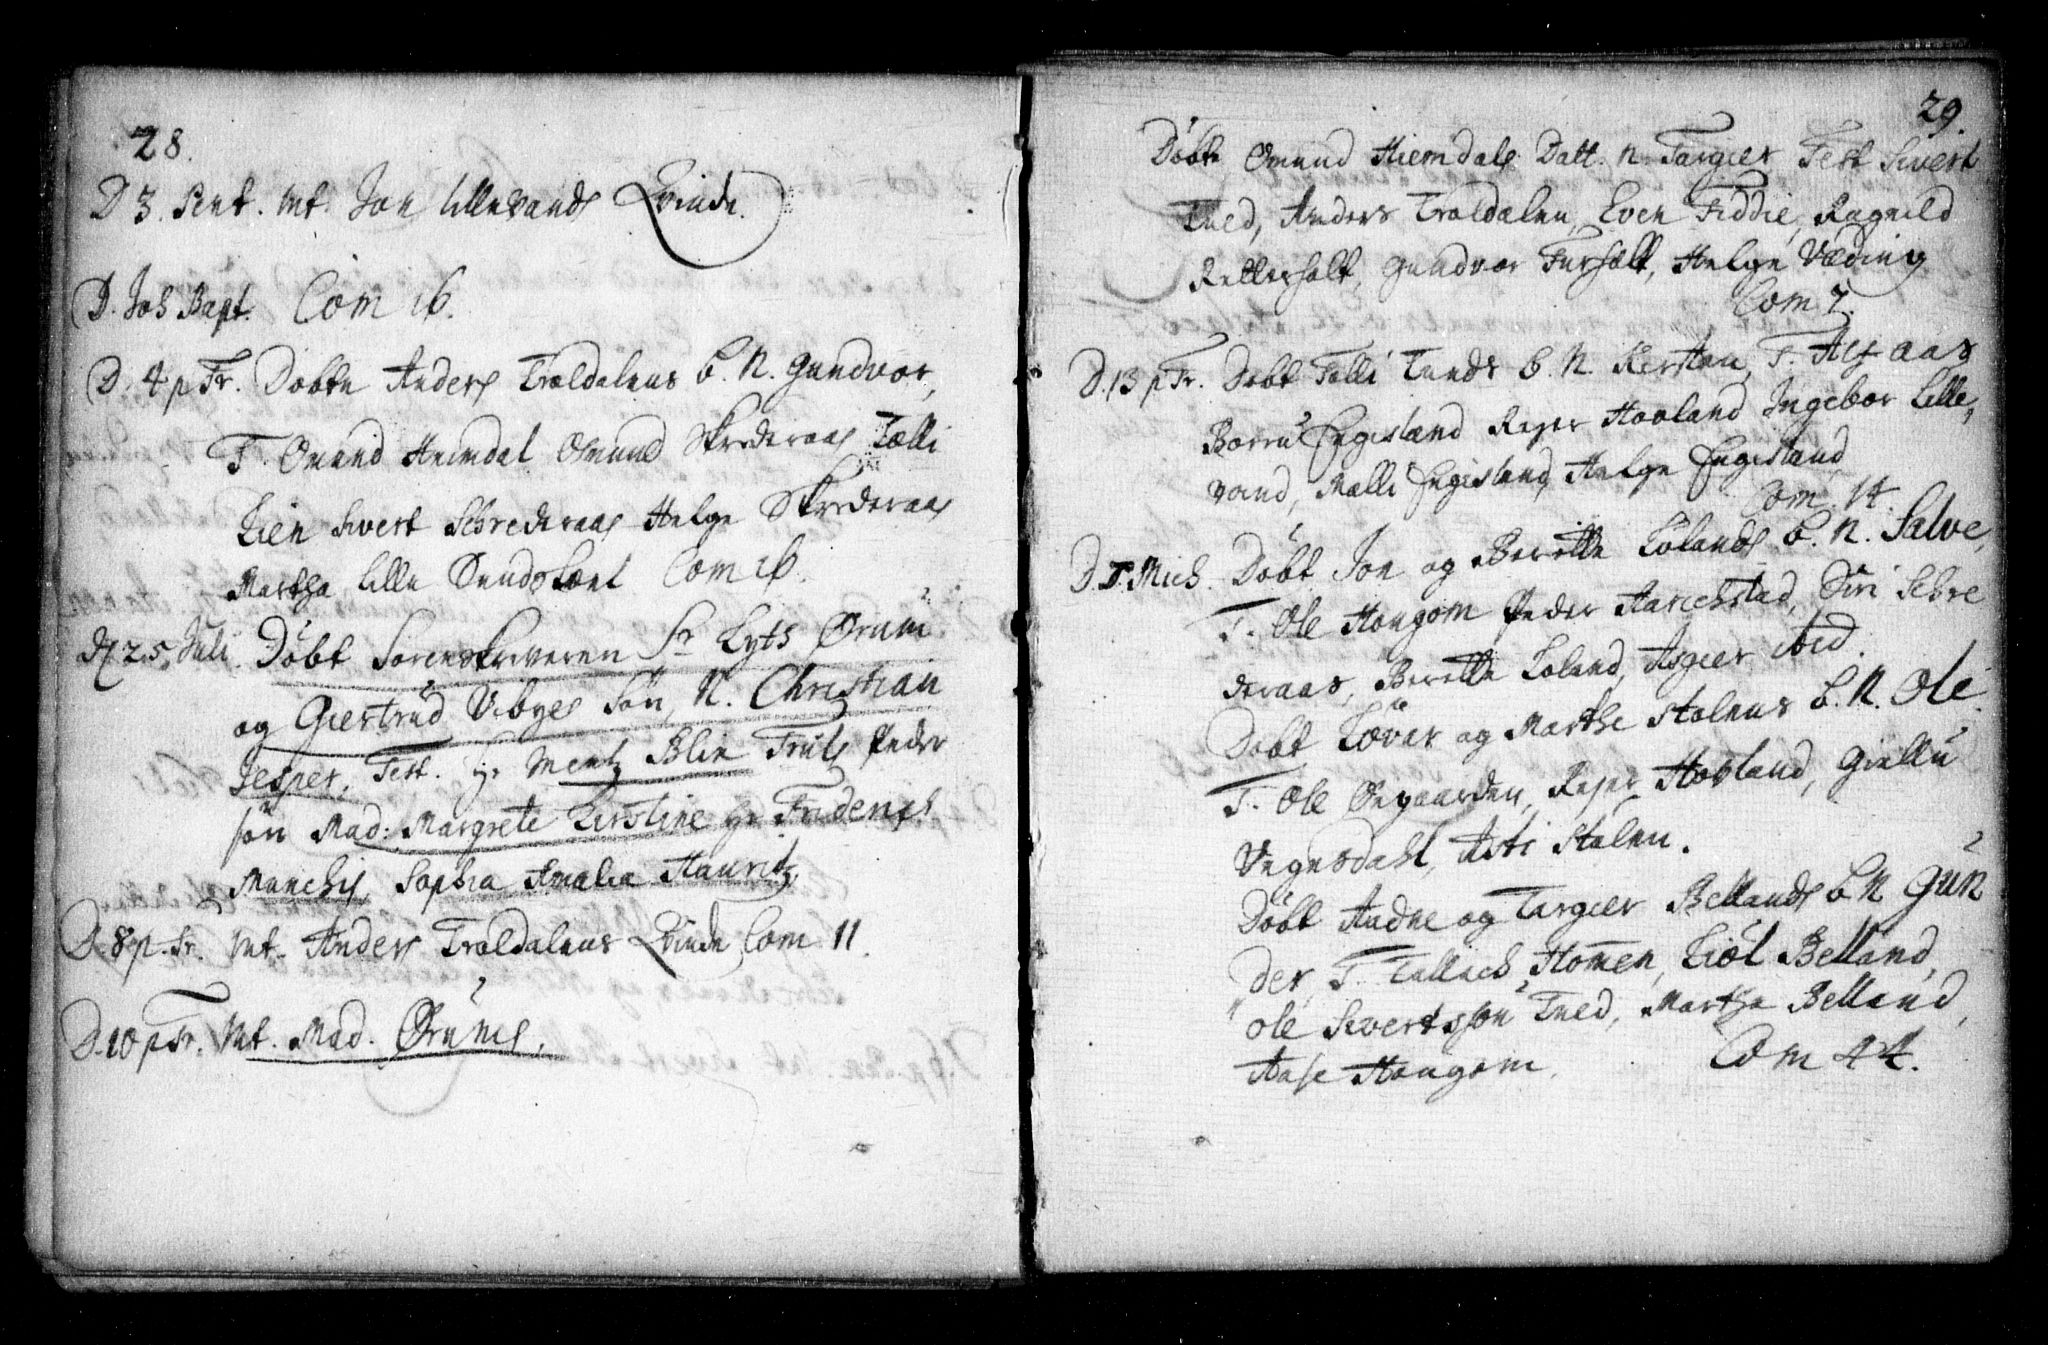 28.
D 3. Pent. Int. Jon Lillevands Qvinde.
D. Joh Bapt. Com 16.
D. 4 p Tr. Døbte Anders Troldalens b. N. Gundvor,
T. Omund Heimdal Omund Skrederaas Tælli
Lien Sivert Schrederaas Helge Skrederaas
Martha Lille Com 16.
D 25 Juli. Døbt Sorenskriveren Sr Lyts Ørum
og Giertrud Vibyes Søn, N. Christian
Jesper. Test. Hr Mentz Blix Truls Peder
søn Mad: Margrete Kirstine Hr Friderichs
Munchs, Sophia Amalia Hauritz.
D. 8 p. Tr. Int. Anders Troldalens Qvinde Com 11.
D. 10 p Tr. Int. Mad. Ørums.
29.
Døbte Omund Hiemdals Datt. N. Targier Test Sivert
Tued, Anders Troldalen, Even Fiddie, Ragnild
Retterholt, Gundvor Furholt, Helge Væding
Com 7.
D. 13 p Tr. Døbt Tolli Tueds b. N. Kersten, T.
Børru Engisland Rejer Hovland Ingebor Lille,
vand, Malli Engisland, Helge Engisland,
Com. 14.
D. F. Mich. Døbt Jon og Berette Lolands b. N. Salve,
T. Ole Hougom Peder Aarichstad, Siri Schre
deraas, Berette Loland, Asgier ibid.
Døbt Løvar og Marthe Stolens b. N. Ole
T. Ole Øvgaarden, Rejer Hovland, Giellu
Vegusdahl, Asti Stolen.
Døbt Andne og Targier Bellands b. N Gun
der, T. Tallach Homen, Kiøl Belland,
Ole Sivertssøn Tued, Martha Belland,
Aase Hougom. Com 44.